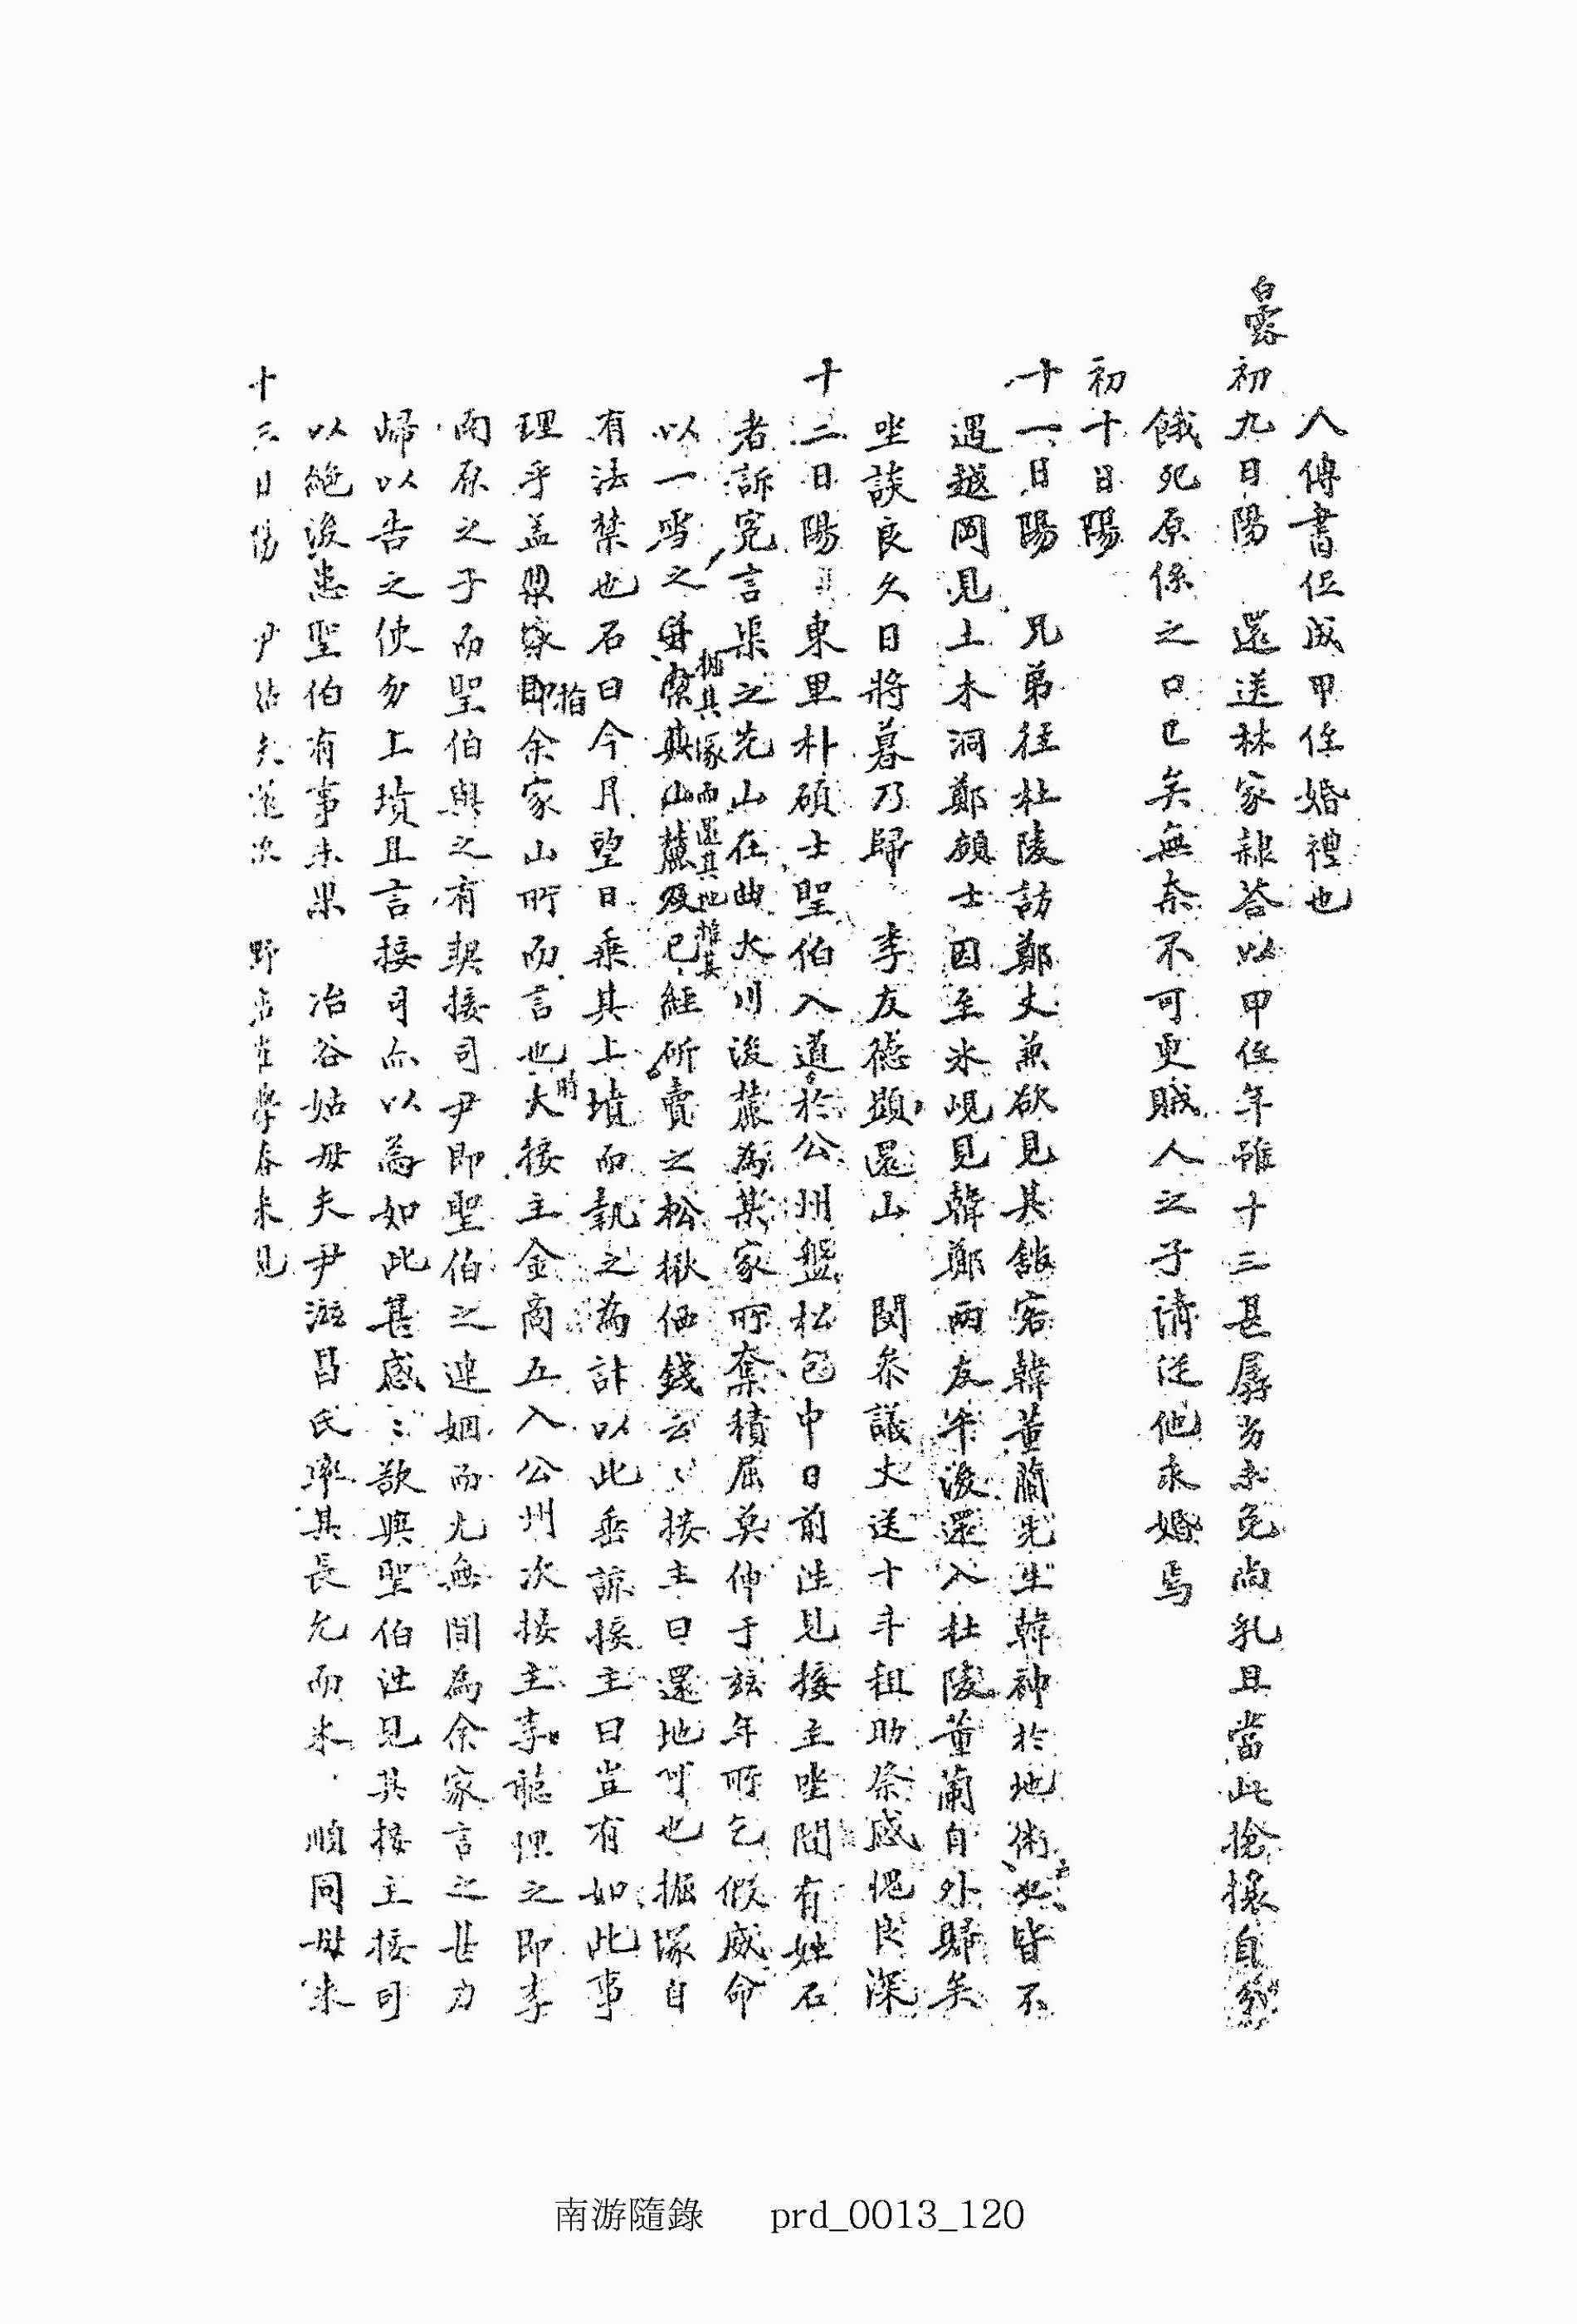 人傳書促成甲侄婚禮也
白露
初九日陽 還送林家隷答以甲侄年雖十三甚孱劣未免尙乳且當此搶攘自分
餓死原係之口已矣無奈不可更賊人之子請從他求婚焉
初十日陽
十一日陽 兄弟往杜陵訪鄭丈兼欲見其舘客韓董蘭先生韓神於地術 皆不
遇越岡見土木洞鄭碩士因至氷峴見韓鄭兩友午後還入杜陵董蘭自外歸矣
坐談良久日將暮乃歸 李友德顯還山 閔叅議丈送十斗租助粂感愧良深
十二日陽 東里朴碩士聖伯入道於公州盤松包中日前往見接主坐間有姓石
者訴寃言渠之先山在曲火川後麓爲某家所奪積屈莫伸于玆年所乞假威命
以一雪之 掘其塚而還其地 其山麓及已經斫賣之松楸価錢云〻接主曰還地可也掘塚自
有法禁也石曰今月望日乘其上墳而執之爲計以此垂諒接主曰豈有如此事
理乎盖 家卽指余家山所而言也時大接主金商五入公州次接主李 之卽李
雨 之子而聖伯與之有契接司尹卽聖伯之連姻而尤無間爲余家言之甚力
歸以告之使勿上墳且言接司亦以爲如此甚感〻欲與聖伯往見其接主接司
以絶後患聖伯有事未果 冶谷姑母夫尹滋昌氏率其長允而來 順同母來
十三日陽 尹 夫 野 崔學春來見
南游隨錄 prd_0013_120